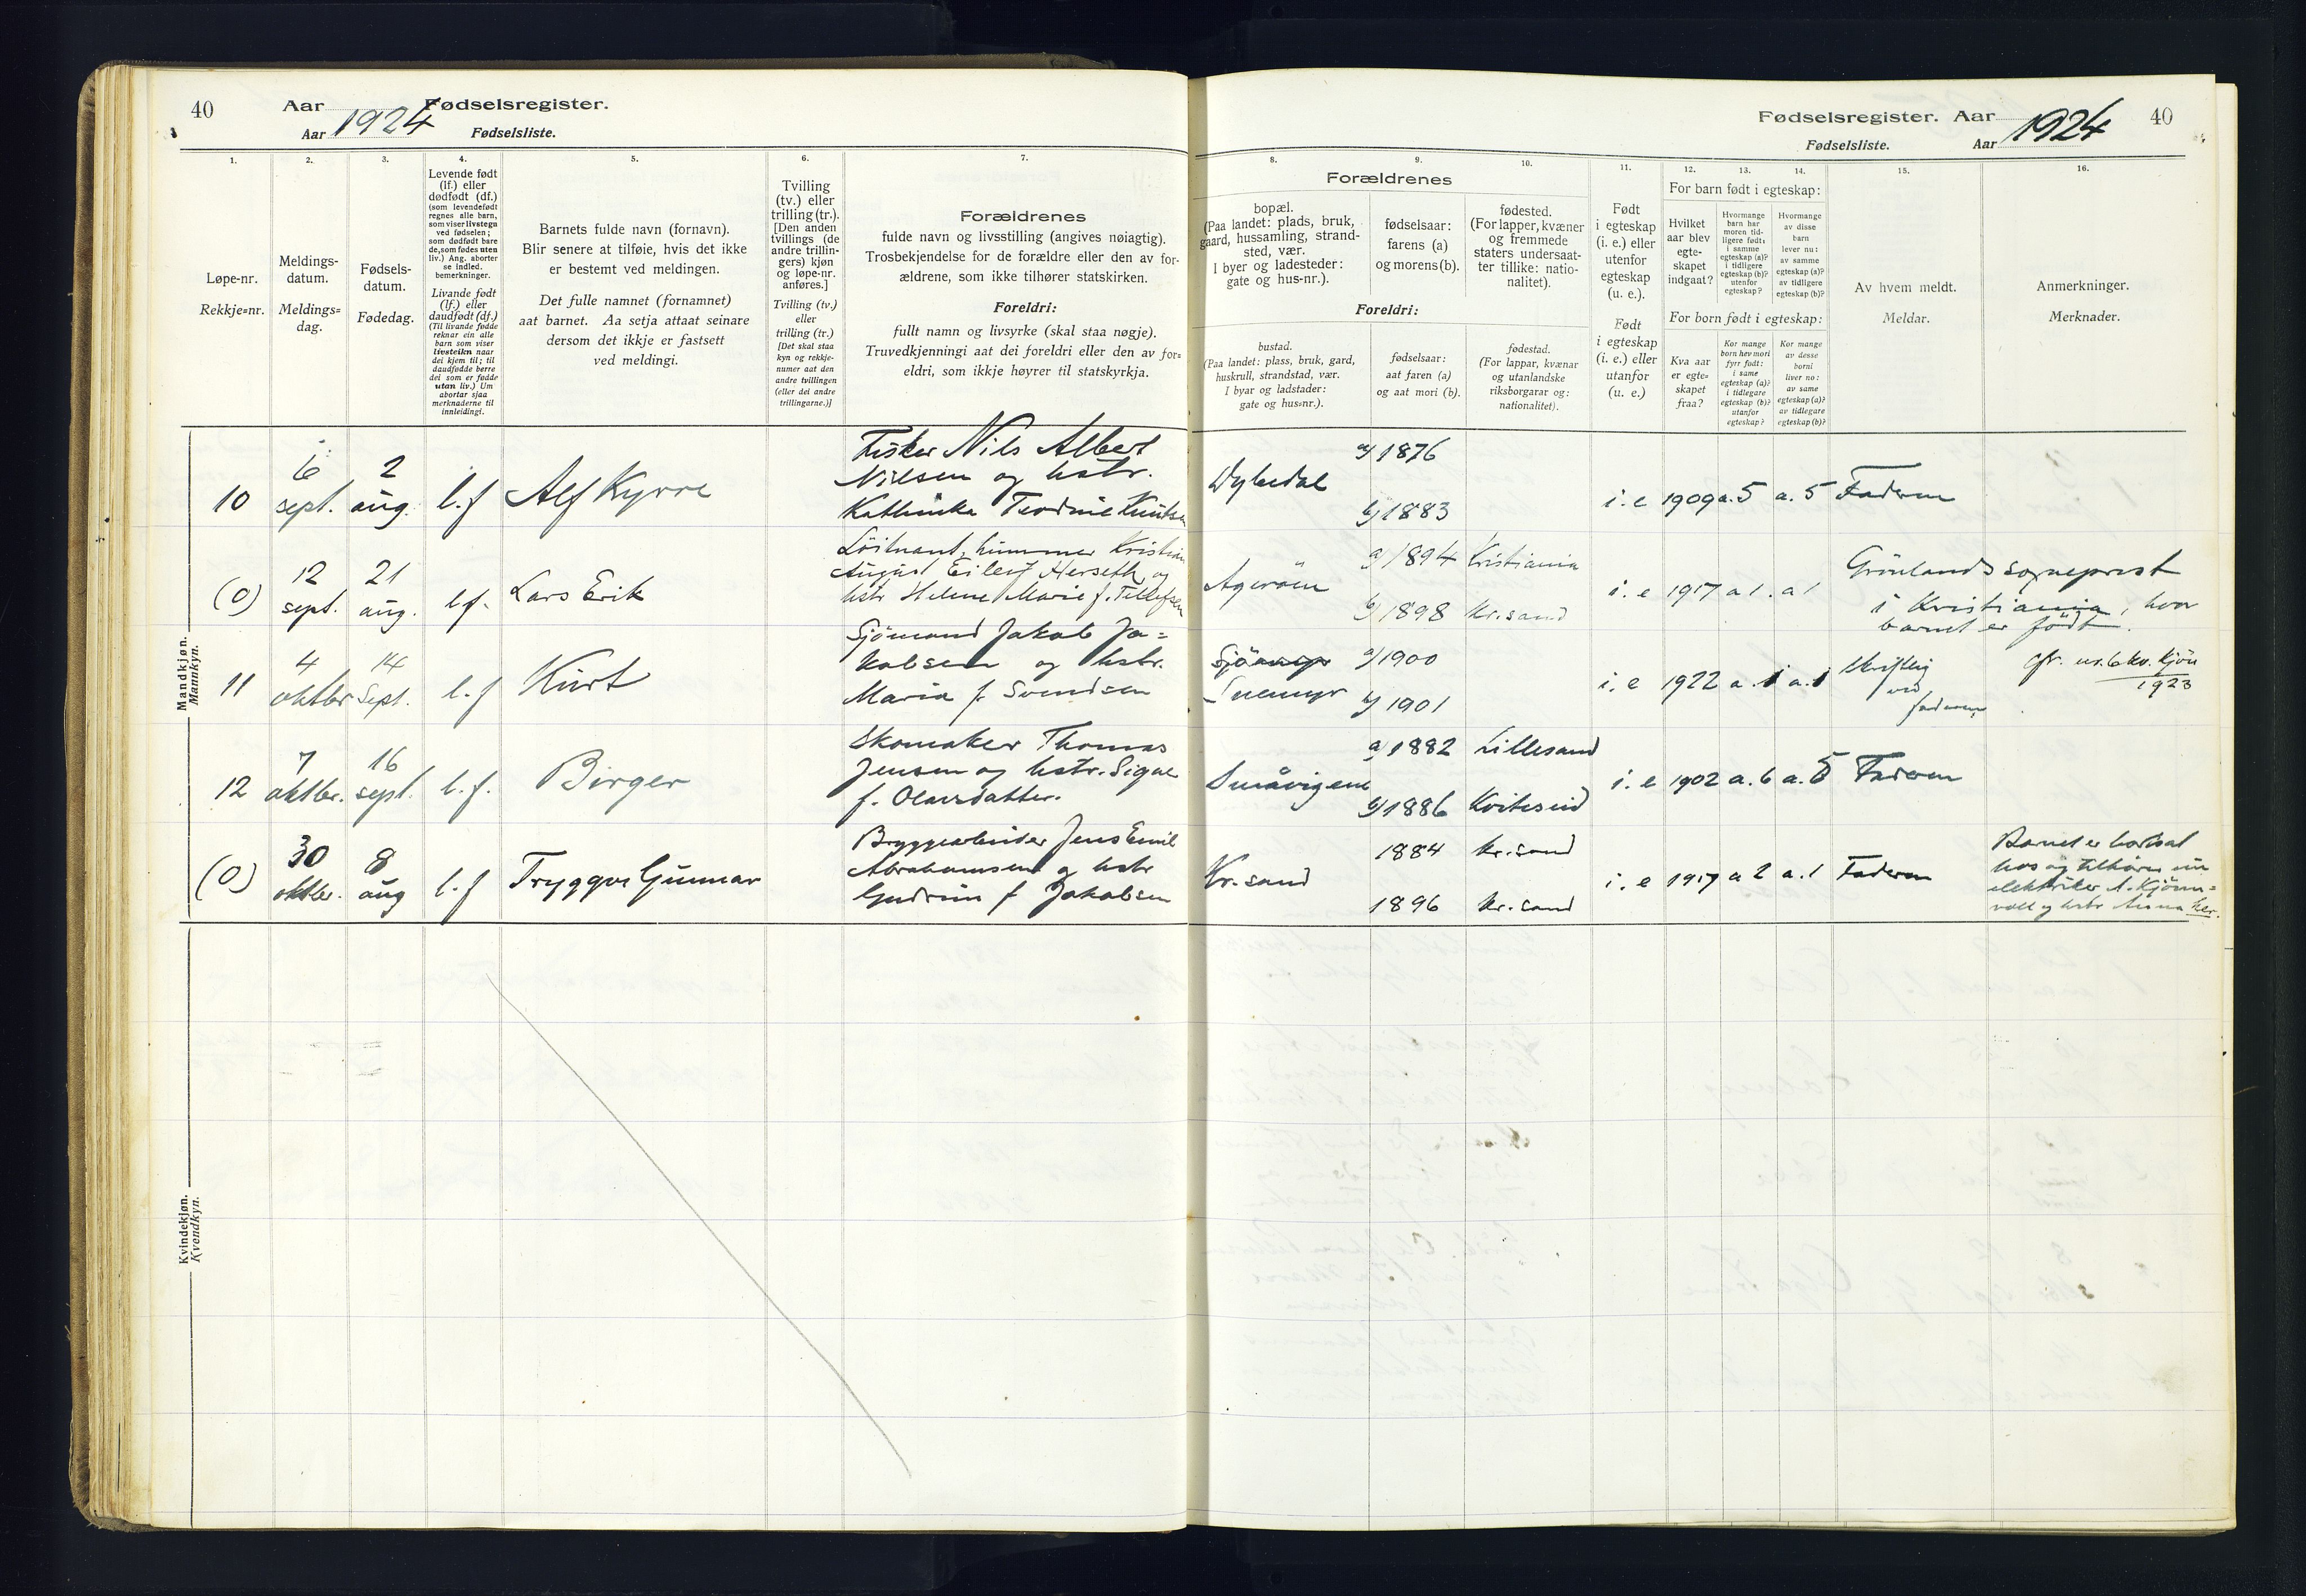 40
Aar 1924 Fødselsregister.
Aar Fødselsliste.
1.
2.
3.
4.
5.
6.
7.
Løpe-nr.
Rekkje=nr.
Meldings-
datum.
Meldings=
dag.
Fødsels-
datum.
Fødedag.
Levende født
(lf.) eller
dødfødt (df.)
(som levendefødt
regnes alle barn,
som viser livstegn
ved fødselen;
som dødfødt bare
de, som fødes uten
liv.) Ang. aborter
se indled.
bemerkninger.
Livande født
(lf.) eller
daudfødt (df.)
(Til livande fødde
reknar ein alle
barn som viser
livsteikn naar
dei kjem til; til
daudfødde berre
dei som er fødde
utan liv.) Um
abortar sjaa
merknaderne til
innleidingi.
Barnets fulde navn (fornavn).
Blir senere at tilføie, hvis det ikke
er bestemt ved meldingen.
Det fulle namnet (fornamnet)
aat barnet. Aa setja attaat seinare
dersom det ikkje er fastsett
ved meldingi.
Tvilling
(tv.) eller
trilling (tr.).
[Den anden
tvillings (de
andre trillin-
gers) kjøn
og løpe-nr.
anføres.]
Tvilling (tv.)
eller
trilling (tr.)
[Det skal staa
kyn og rekkje-
numer aat den
andre tvillingen
(eller dei andre
trillingarne.)]
Forældrenes
fulde navn og livsstilling (angives nøiagtig).
Trosbekjendelse for de forældre eller den av for-
ældrene, som ikke tilhører statskirken.
Foreldri:
fullt namn og livsyrke (skal staa nøgje).
Truvedkjenningi aat dei foreldri eller den av for=
eldri, som ikkje høyrer til statskyrkja.
Mandkjøn.
Mannkyn.
10
6
sept.
2
aug.
l. f
Alf Kyrre
Fisker Nils Albert
Nilsen og hstr.
Kathinka Teodine Knutsen
(0)
12
sept.
21
aug.
l.f.
Lars Erik
Löitnant, Kristian
August Eilerf Herseth og
hstr Helene Marie f. Tellefsen
11
4
oktbr
14
Sept.
l. f
Kurt
Sjömand Jakob Ja=
kobsen og hstr.
Maria f. Svendsen
12
7
oktbr.
16
sept.
l. f.
Birger
Skomaker Thomas
Jensen og hstr. Signe
f. Olavsdatter.
(0)
30
oktbr.
8
aug
l. f
Tryggve Gunnar
Bryggearbeider Jens Emil
Abrahamsen og hstr
Gudrun f Jakobsen
Kvindekjøn.
Kvendkyn.
Fødselsregister. Aar 1924
40
Fødselsliste. Aar
8.
9.
10.
11.
12.
13.
14.
15.
16.
Forældrenes
bopæl.
(Paa landet: plads, bruk,
gaard, hussamling, strand-
sted, vær.
I byer og ladesteder:
gate og hus-nr.).
fødselsaar:
farens (a)
og morens (b).
fødested.
(For lapper, kvæner
og fremmede
staters undersaat-
ter tillike: natio-
nalitet).
Foreldri:
bustad.
(Paa landet: plass, bruk, gard,
huskrull, strandstad, vær.
I byar og ladstader:
gate og hus=nr.).
fødselsaar:
aat faren (a)
og aat mori (b).
fødestad.
(For lappar, kvænar
og utanlandske
riksborgarar og:
nationalitet).
Født
i egteskap
(i. e.) eller
utenfor
egteskap
(u. e.).
Født
i egteskap
(i. e.) eller
utanfor
(u. e.)
For barn født i egteskap:
Hvilket
aar blev
egte-
skapet
indgaat?
Hvormange
barn har
moren tid-
ligere født:
i samme
egteskap (a)?
i tidligere
egteskap (b)?
utenfor
egteskap?
Hvormange
av disse
barn
lever nu:
av samme
egteskap (a)?
av tidligere
egteskap (b)?
For born født i egteskap:
Kva aar
er egte-
skapet
fraa?
Kor mange
born hev mori
fyrr født:
i same
egteskap (a)?
i tidlegare
egteskap (b)?
utanfor
egteskap?
Kor mange
av desse
borni
liver no:
av same
egteskap (a)?
av tidlegare
egteskap (b)?
Av hvem meldt.
Meldar.
Anmerkninger.
Merknader.
Dybedal
a) 1876
b) 1883
i. e 1909 a. 5 a. 5 Faderen
Ageröen
a) 1894 Kristiania
b) 1898 kr.sand
i. e 1917 a 1. a 1
Grönlands sogneprest
i Kristiania, hvor
barnet er födt.
a) 1900
b) 1901
i. e 1922 a. 1 a. 1
Skriftlig
ved
faderen
cfr. nr. 6 kv. kjön
1923
Småvigene
a) 1882 Lillesand
b) 1886 Kviteseid
i. e 1902 a. 6 a. 5 Faderen
Kr.sand
1884 kr.sand
1896 kr.sand
i. e 1917 a 2 a. 1 Faderen
Barnet er bortsat
hos og tilhörer nu
elektriker A. Kjönn=
vold og hstr Anna her.